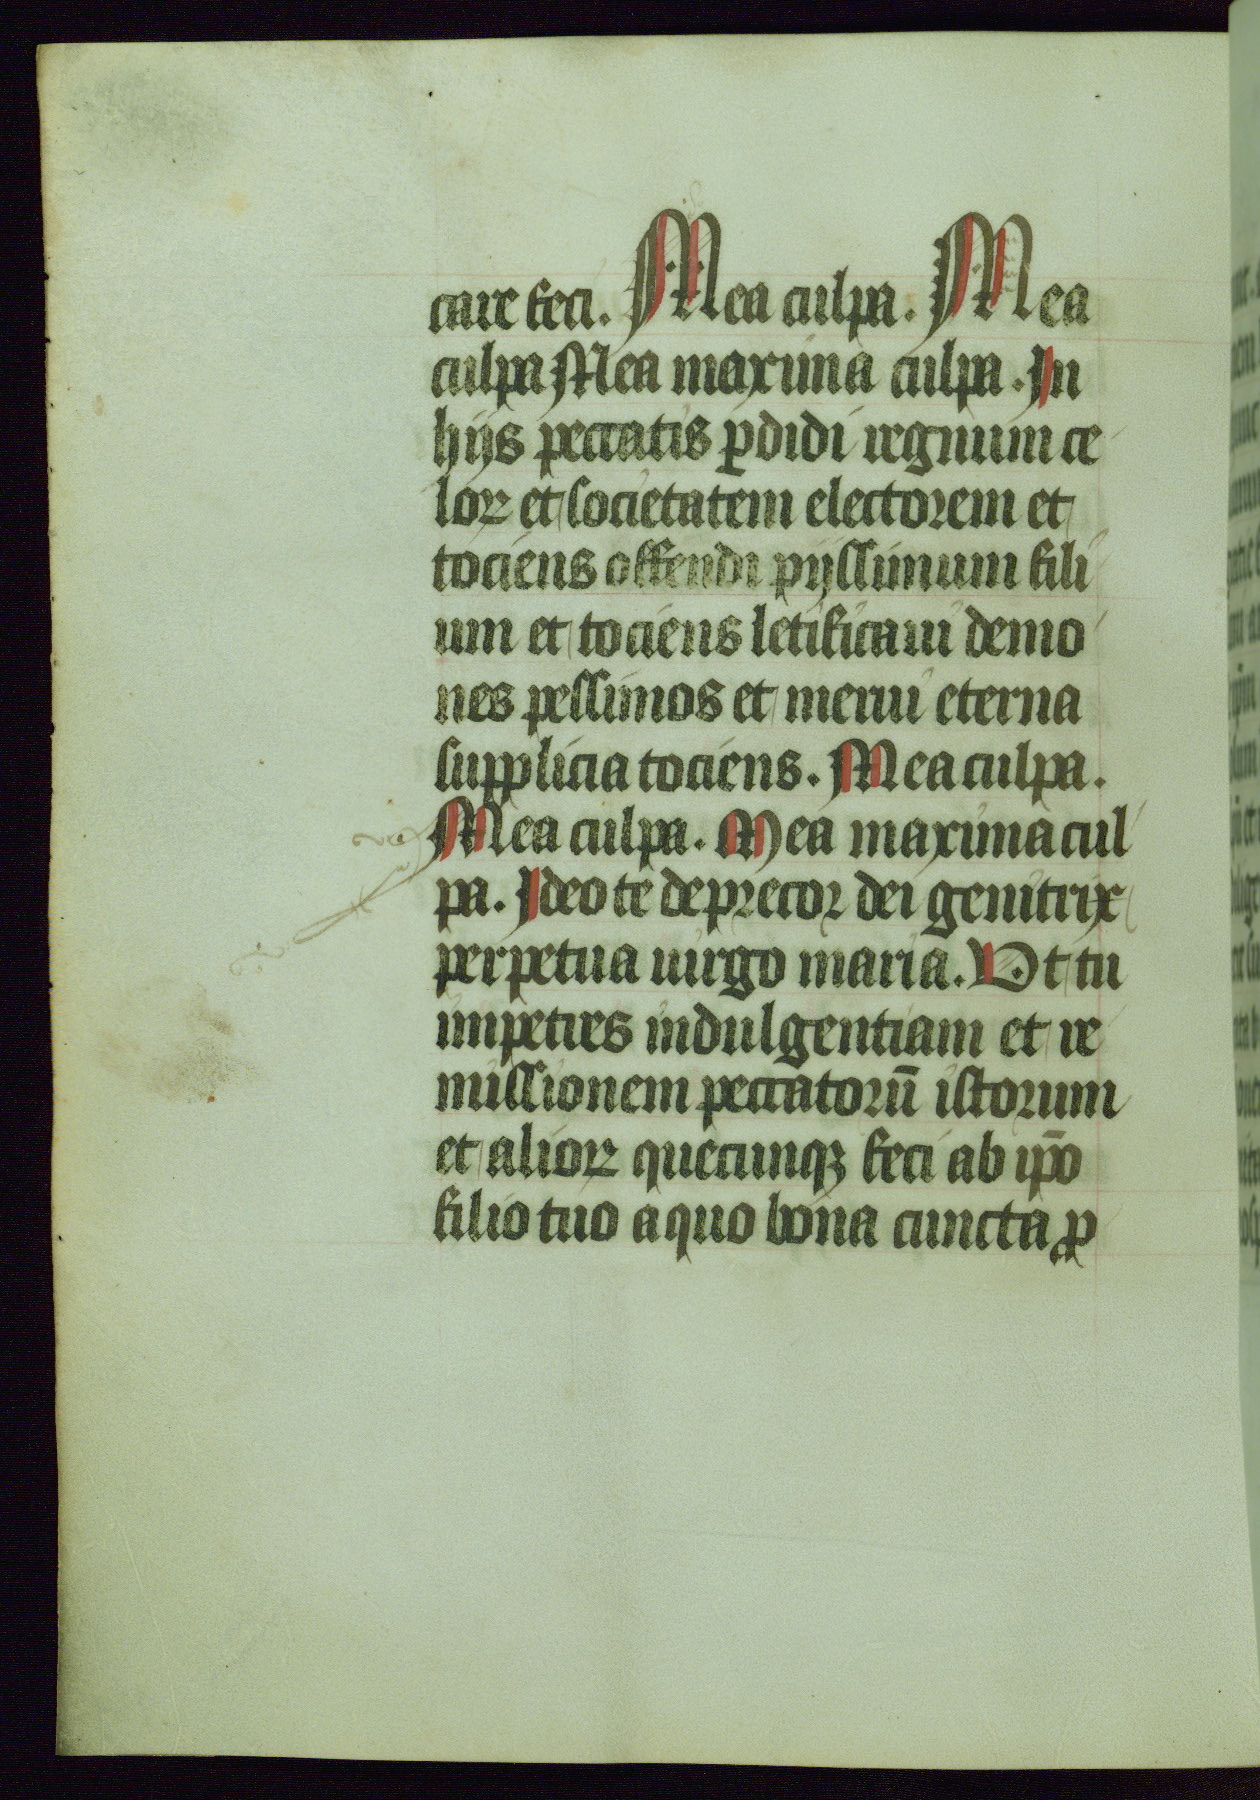 care feci. Mea culpa. Mea
culpa Mea maxima culpa. In
hijs peccatis ꝑdidi regnum ce
loꝝ et societatem electorem et
tociens offendi pijssimum fili
um et tociens letificaui demo
nes pessimos et merui eterna
supplicia tociens. Mea culpa.
Mea culpa. Mea maxima cul
pa. Ideo te deprecor dei genitrix
perpetua uirgo maria. Vt tu
impetres indulgentiam et re
missionem peccatorū istorum
et alioꝝ quecunqꝫ feci ab ip̄o
filio tuo a quo bona cuncta ꝓ